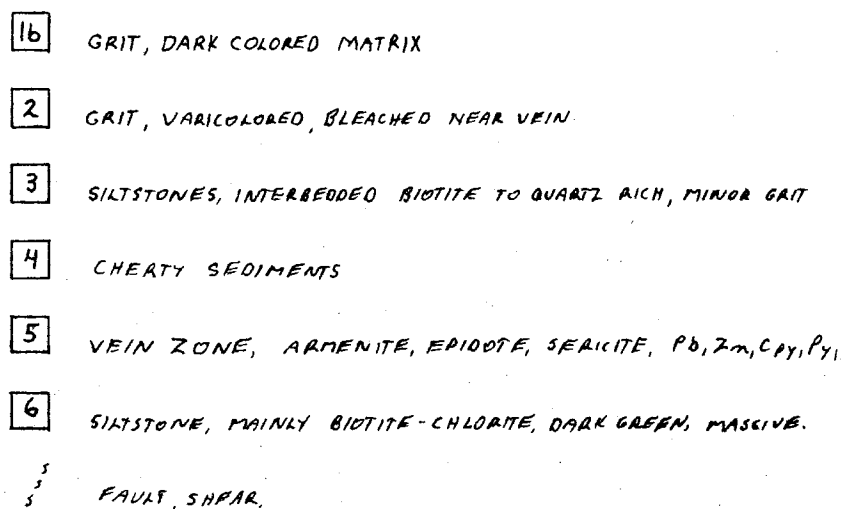 1b GRIT, DARK COLORED MATRIX
2 GRIT, VARICOLORED, BLEACHED NEAR VEIN
3 SILTSTONES, INTERBEDDED BIOTITE TO QUARTZ RICH, MINOR GRIT
4 CHERTY SEDIMENTS
5 VEIN ZONE, ARMENITE, EPIDOTE, SERICITE, Pb, Zn, Cpy, Py,
6 SILTSTONE, MAINLY BIOTITE-CHLORITE, DARK GREEN, MASSIVE.
FAULT, SHEAR.